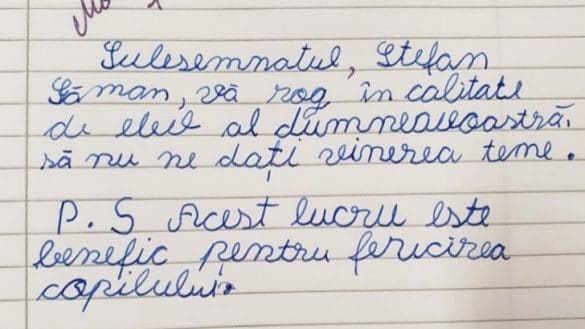 Sulesemnatul, Ștefan
Șăman, vă rog în calitate
de elev al dumneavoastră,
să nu ne dați vinerea teme.
P.S Acest lucru este
benefic pentru fericirea
copilului.